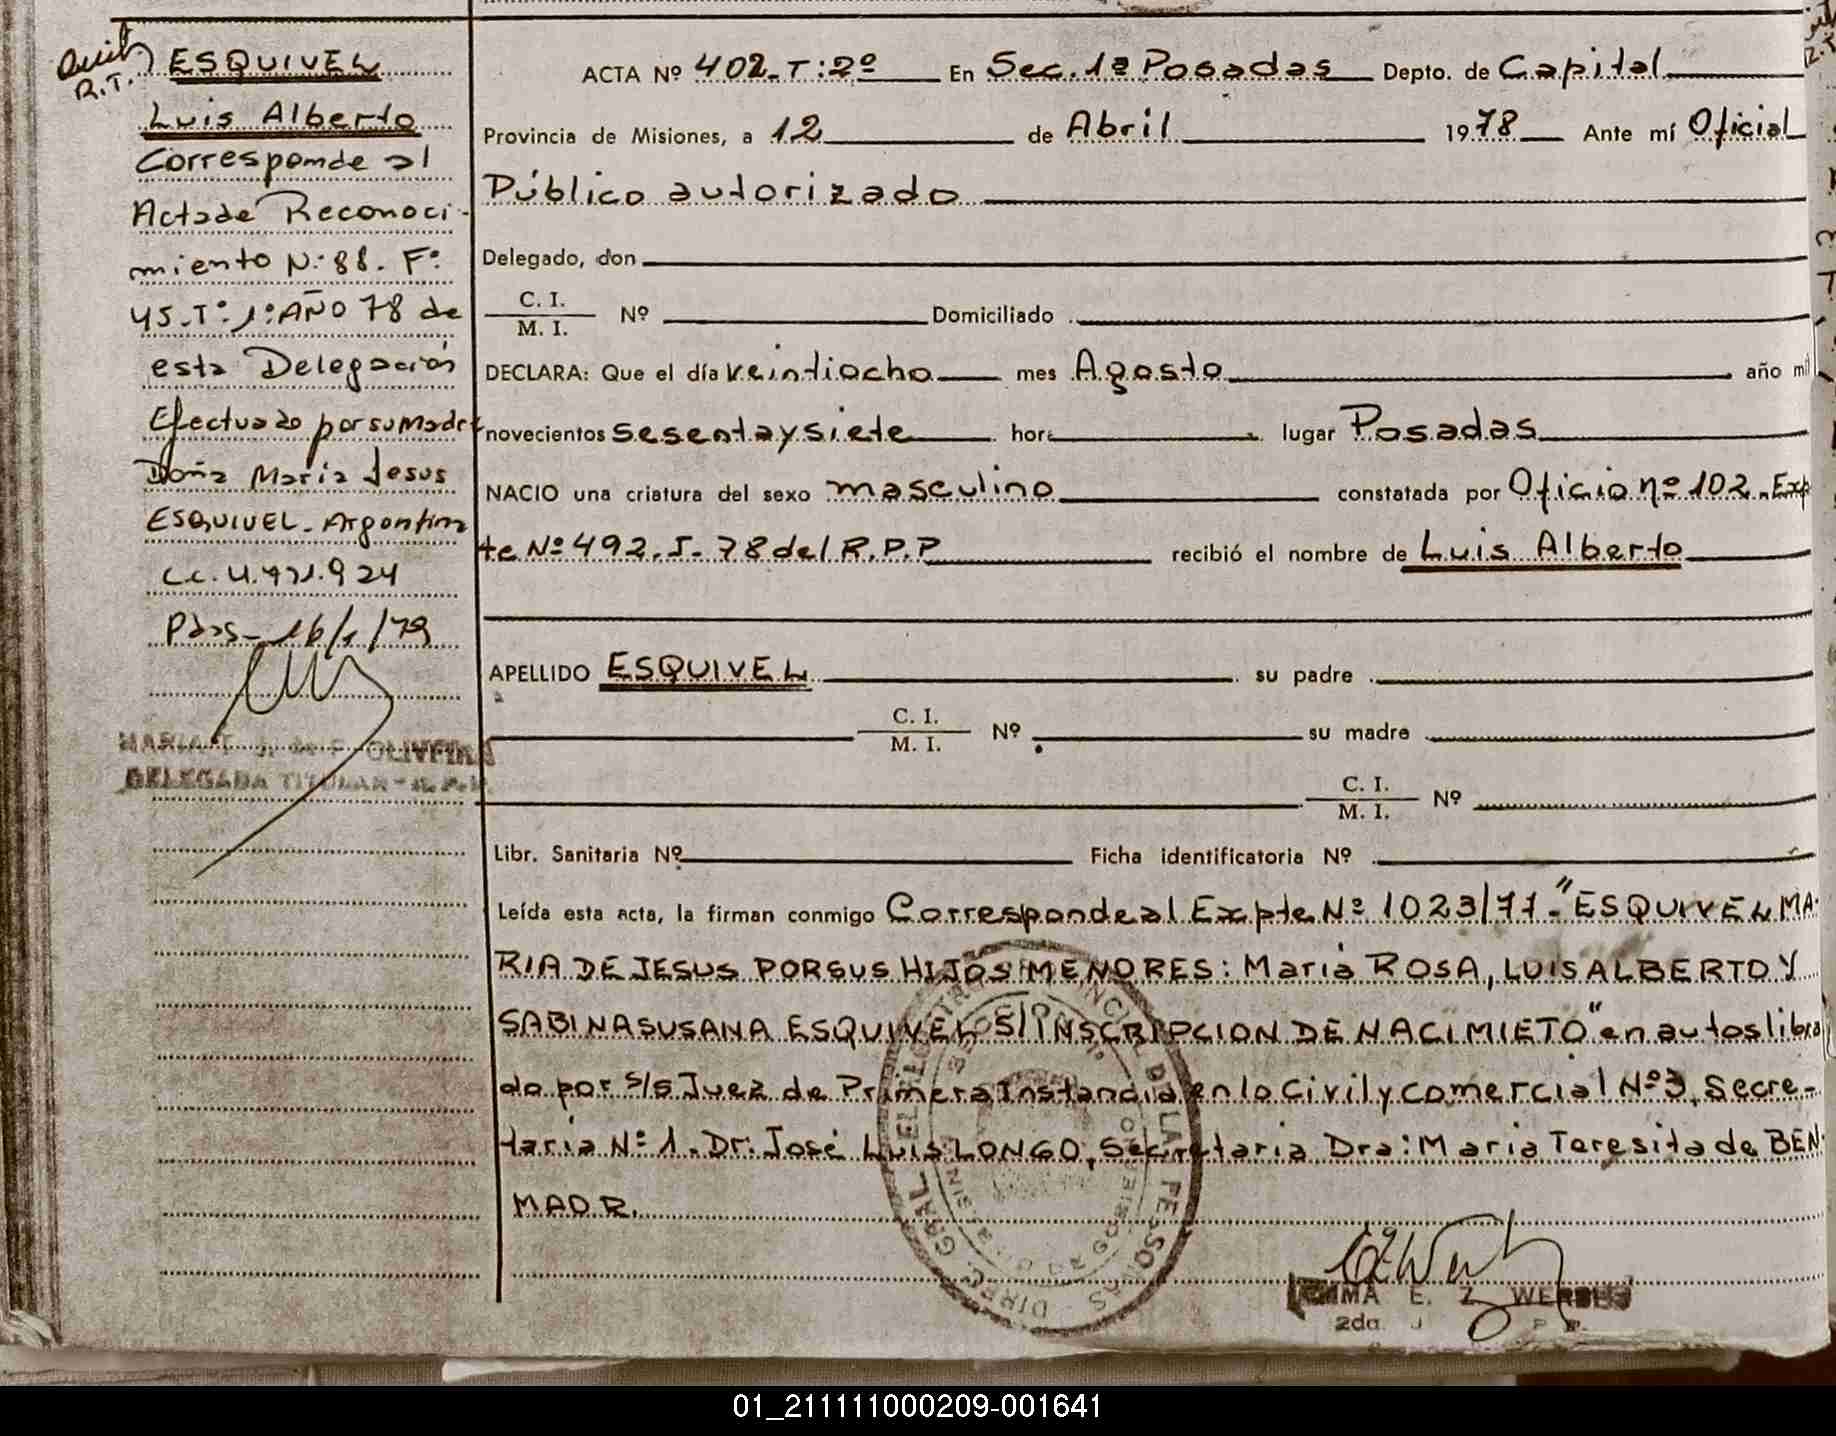 ESQUIVEL
Luis Alberto
Corresponde al
Acta de Reconoci-
miento N:88. Fº
45-Tº 1º AÑO 78 de
esta Delegación
Efectuado por su Madre
Doña Maria Jesus
ESQUIVEL-Argentina
Pdas-16/1/79
OLIVEIRA
DELEGADA TITULAR-R.P.P.
ACTA Nº 402-T:2º En Sec. 1ª Posadas Depto. de Capital
Provincia de Misiones, a 12 de Abril 1978 Ante mí Oficial
Público autorizado
Delegado, don
C. I.
M. I. Nº Domiciliado
DECLARA: Que el día veintiocho mes Agosto año mil
novecientos sesenta y siete hora lugar Posadas
NACIO una criatura del sexo masculino constatada por Oficio nº 102. Exp
te Nº 492-J-78 del R.P.P recibió el nombre de Luis Alberto
APELLIDO ESQUIVEL su padre
C. I.
M. I. Nº su madre
C. I.
M. I. Nº
Libr. Sanitaria Nº Ficha identificatoria Nº
Leída esta acta, la firman conmigo Corresponde al Expte Nº 1023/77-"ESQUIVEL MA-
RIA DE JESUS POR SUS HIJOS MENORES: Maria ROSA, LUIS ALBERTO Y
SABINA SUSANA ESQUIVEL S/INSCRIPCION DE NACIMIETO" en autos libra
do por s/s Juez de Primera Instancia en lo Civil y Comercial Nº 3, Secre-
taria Nº 1. Dr. José Luis LONGO, Secretaria Dra: Maria Teresita de BEN
MADR.
E. Z. WERBES
2da.
01_211111000209-001641